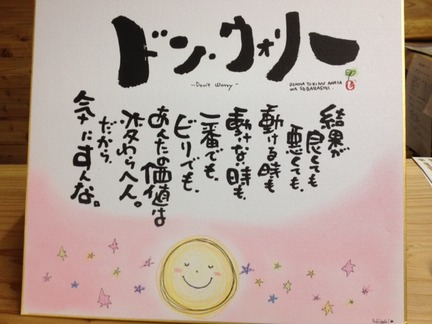 ドン・ウォリー
~Don't Worry~
DONNA TOKIMO ANATA
WA SUBARASHII.
結果が
良くても
悪くても、
動ける時も
動けない時も、
一番でも、
ビリでも、
あんたの価値は
変わらへん。
だから
気にすんな。